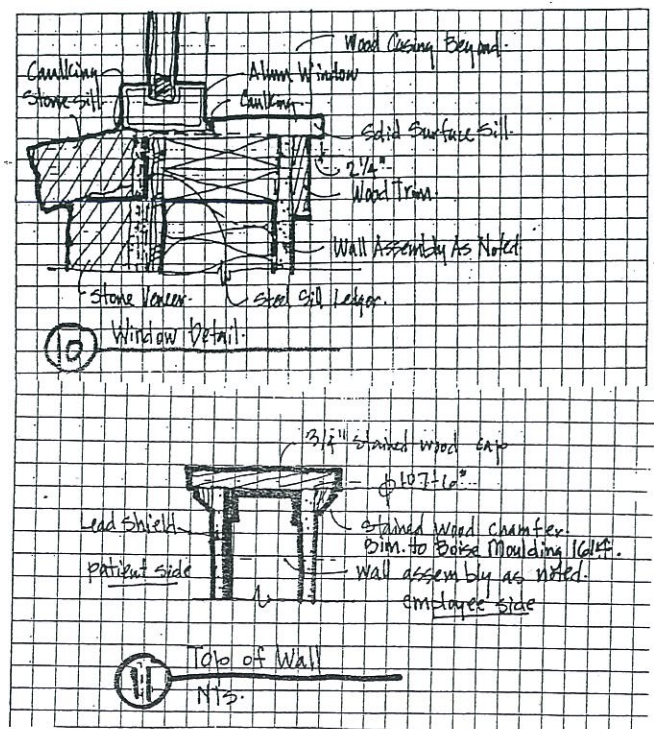 Wood Casing Beyond.
Caulking
Stone sill
Alum Window
Caulking
Solid Surface Sill.
2 1/4"
Wood Trim.
Wall Assembly As Noted
Stone Veneer.
Steel Sill Ledger.
10
Window Detail.
3/4" stained wood cap
107'-6"
Lead Shield
Stained Wood Chamfer.
Sim. to Boise Moulding
patient side
Wall assembly as noted.
employee side
11
Top of Wall
NTS.